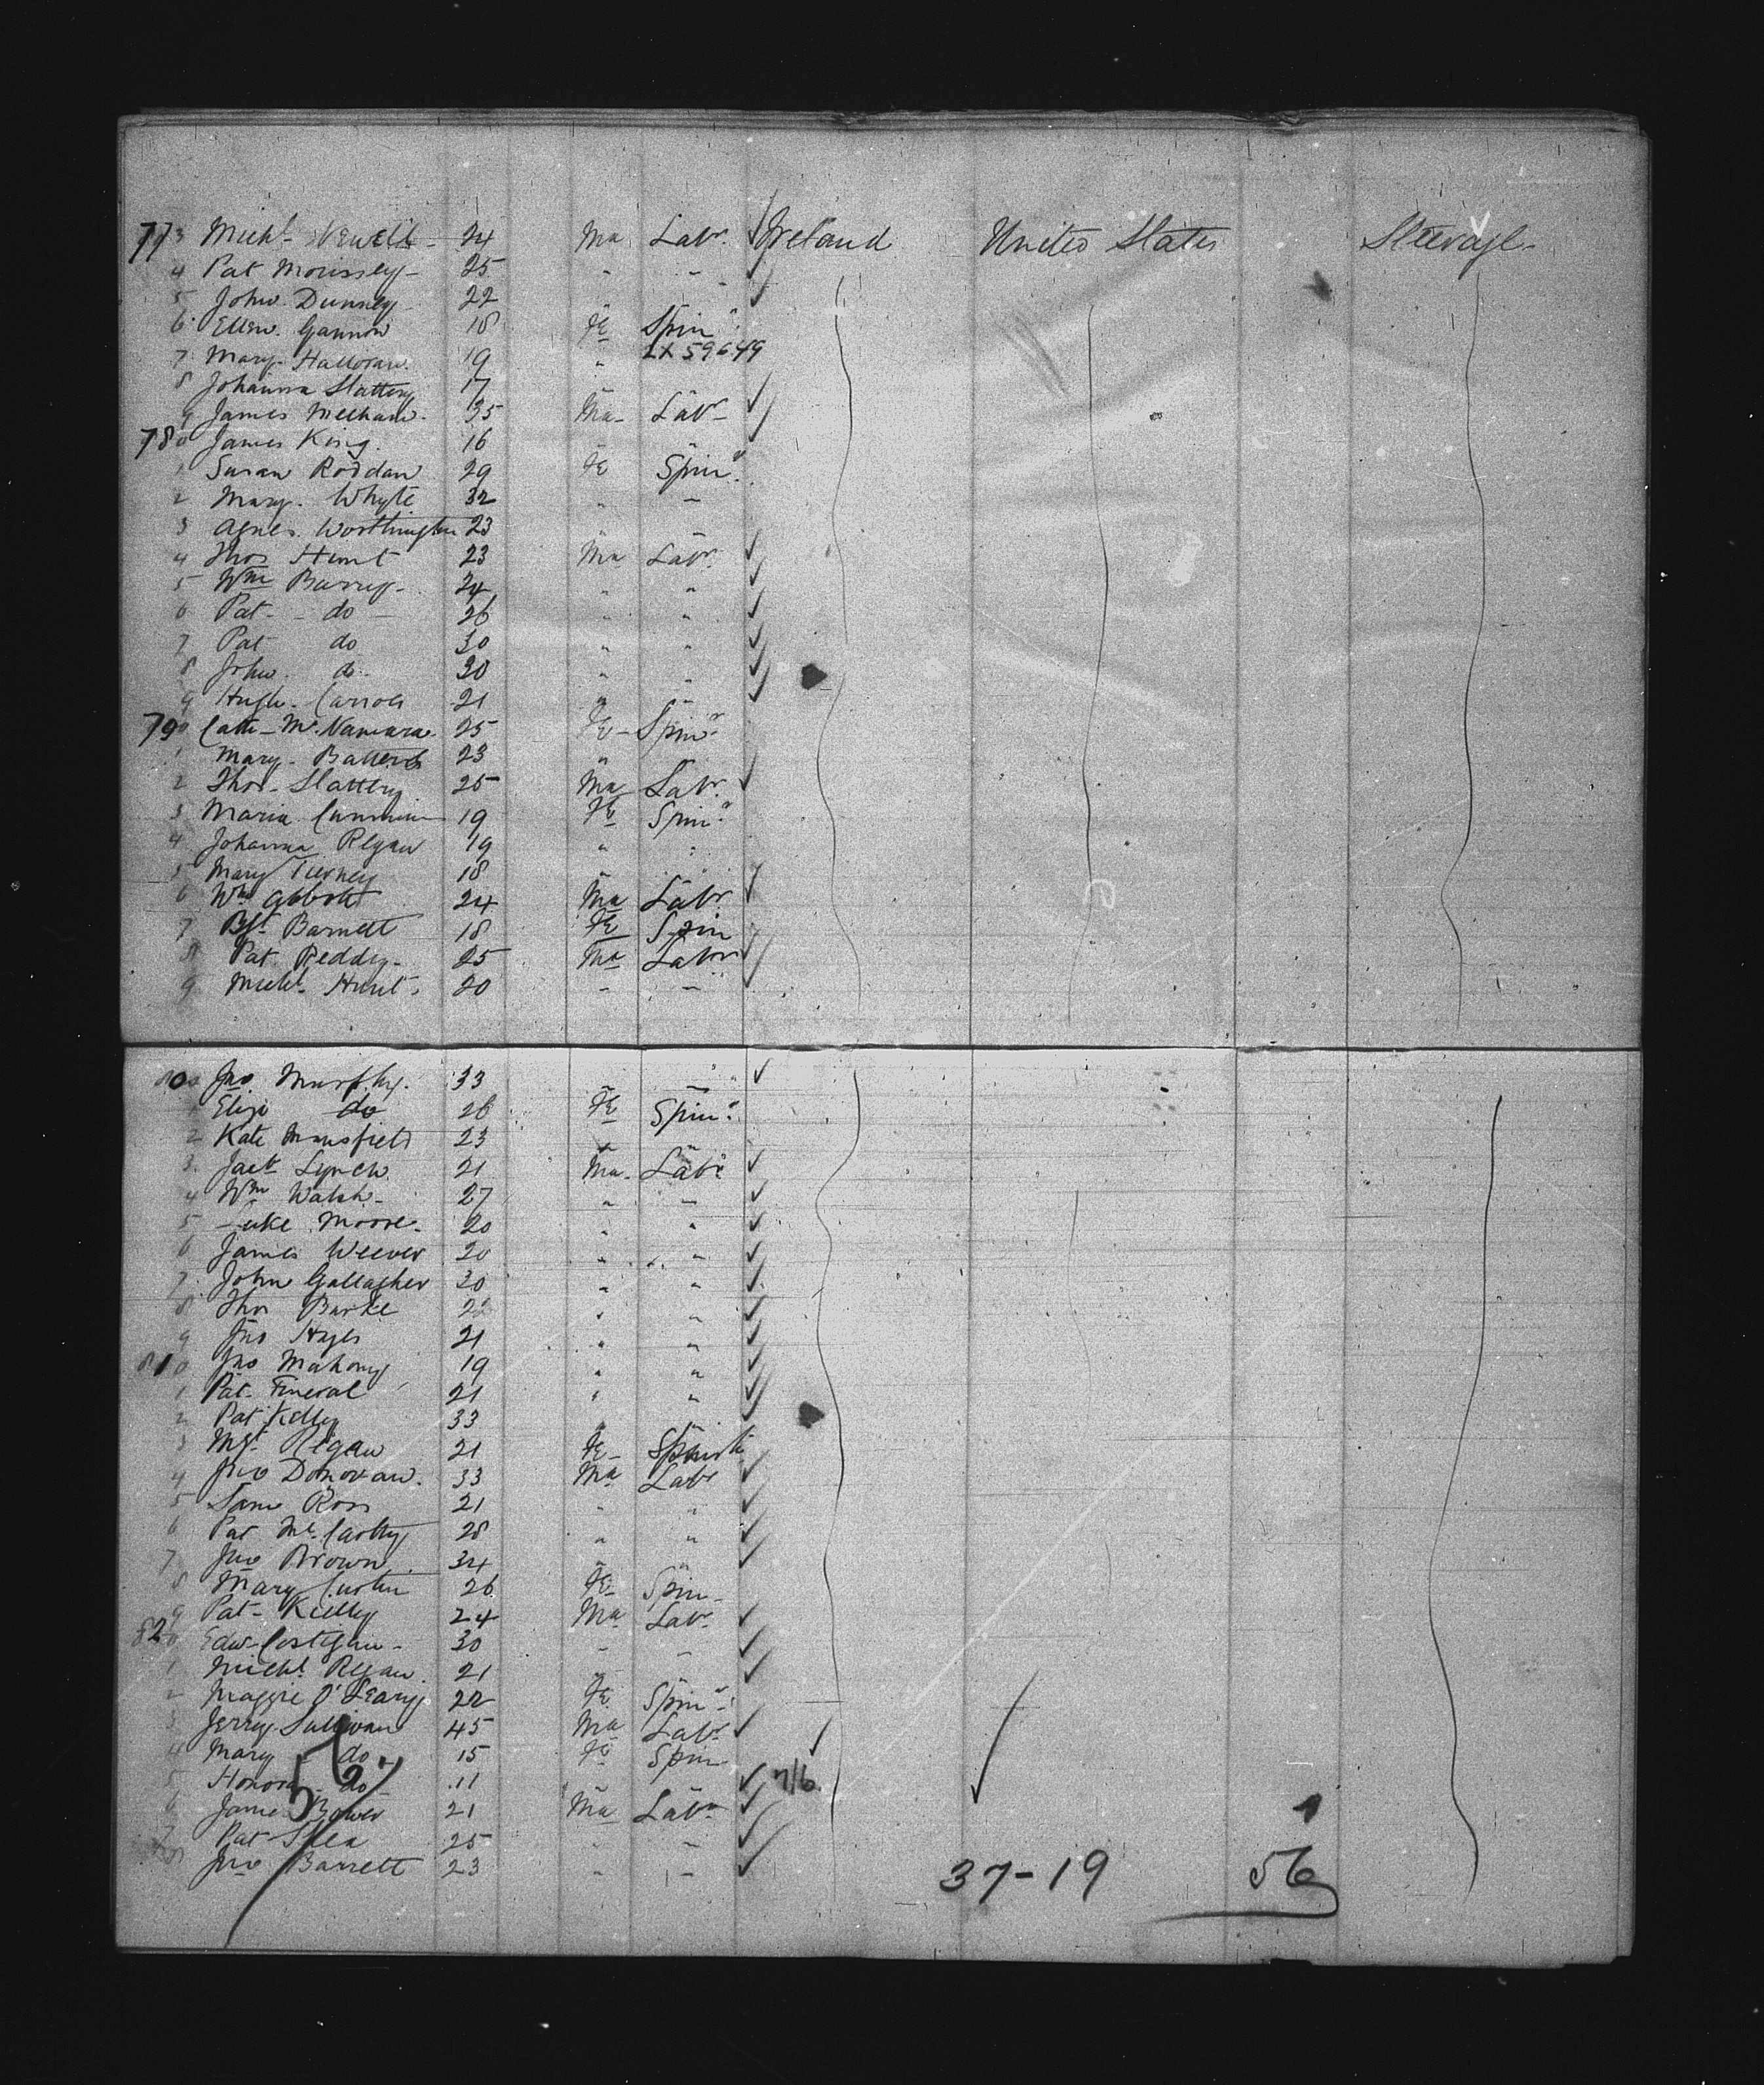 773 Michl Newell 24 Ma Labr. Ireland United States Steerage
4 Pat Morissey 25 " "
5 John Dunney 22
6 Ellen Gannon 18 Fe Spinr
7 Mary Halloran 19 " 2X59649
8 Johanna Slattery 17
9 James Meehan 35 Ma Labr
780 James King 16
1 Susan Roddan 29 Fe Spinr
2 Mary Whyte 32 " "
3 Agnes Worthington 23
4 Thos Hunt 23 Ma Labr.
5 Wm Barry 24 " "
6 Pat do 26 " "
7 Pat do 30 " "
8 John do 30 " "
9 Hugh Carroll 21 " "
790 Cath McNamara 25 Fe Spinr
1 Mary 23 "
2 Thos Slattery 25 Ma Labr.
3 Maria 19 Fe Spinr
4 Johanna Regan 19 " "
5 Mary Tierney 18 " "
6 Wm Abbott 24 Ma Labr
7 Bgt. Barnett 18 Fe Spin
8 Pat Reddy 25 Ma Labr
9 Michl. Hunt 20 " "
800 Jno Murphy 33 " "
1 Eliza do 26 Fe Spinr
2 Kate Mansfield 23 " "
3 Lynch 21 Ma Labr
4 Wm Walsh 27 " "
5 Luke Moore 20 " "
6 James Weever 20 " "
7 John Gallagher 30 " "
8 Thos Burke 22 " "
9 Jno Hayes 21 " "
810 Jno Mahony 19 " "
1 Pat 21 " "
2 Pat Kelly 33 " "
3 Mgt. Regan 21 Fe
4 Jno Donovan 33 Ma Labr
5 Ross 21 " "
6 Pat McCarthy 28 " "
7 Jno Brown 34 " "
8 Mary Curtin 26 Fe Spin
9 Pat Kielly 24 Ma Labr
820 Edw Costigan 30 " "
1 Michl. Regan 21 " "
2 Maggie O'Leary 22 Fe Spinr
3 Jerry Sullivan 45 Ma Labr
4 Mary do 15 Fe Spin
5 Honora do 11
6 James Bower 21 Ma Labr
7 Pat Shea 25 " "
828 Jno Barrett 23 " "
37-19 56